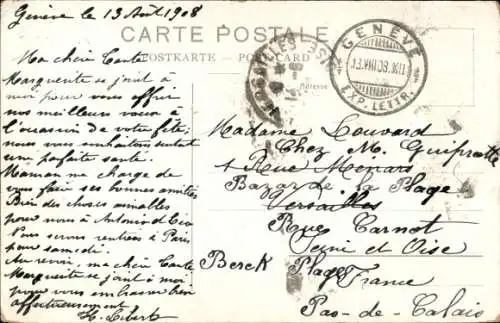 Genève le 13 Août 1908
CARTE POSTALE
POSTKARTE POSTCARD
Adresse
GENÈVE
EXP. LETTR.
Ma chère Tante
Marguerite se joint à
moi pour vous offrir
nos meilleurs vœux à
l'occasion de votre fête;
nous vous souhaitons surtout
une parfaite santé.
Maman me charge de
vous faire ses bonnes amitiés
Bien des choses aimables
pour nous à Antonin et Cie
Nous serons rentrés à Paris
pour samedi.
Au revoir, ma chère Tante
Marguerite se joint à moi
pour vous embrasser bien
affectueusement
H. Libert
Madame Louvard
Chez M. Guipratte
1 Rue Ménars
Bazar de la Plage
Versailles
Rue Carnot
Seine et Oise
Berck Plage
France
Pas-de-Calais